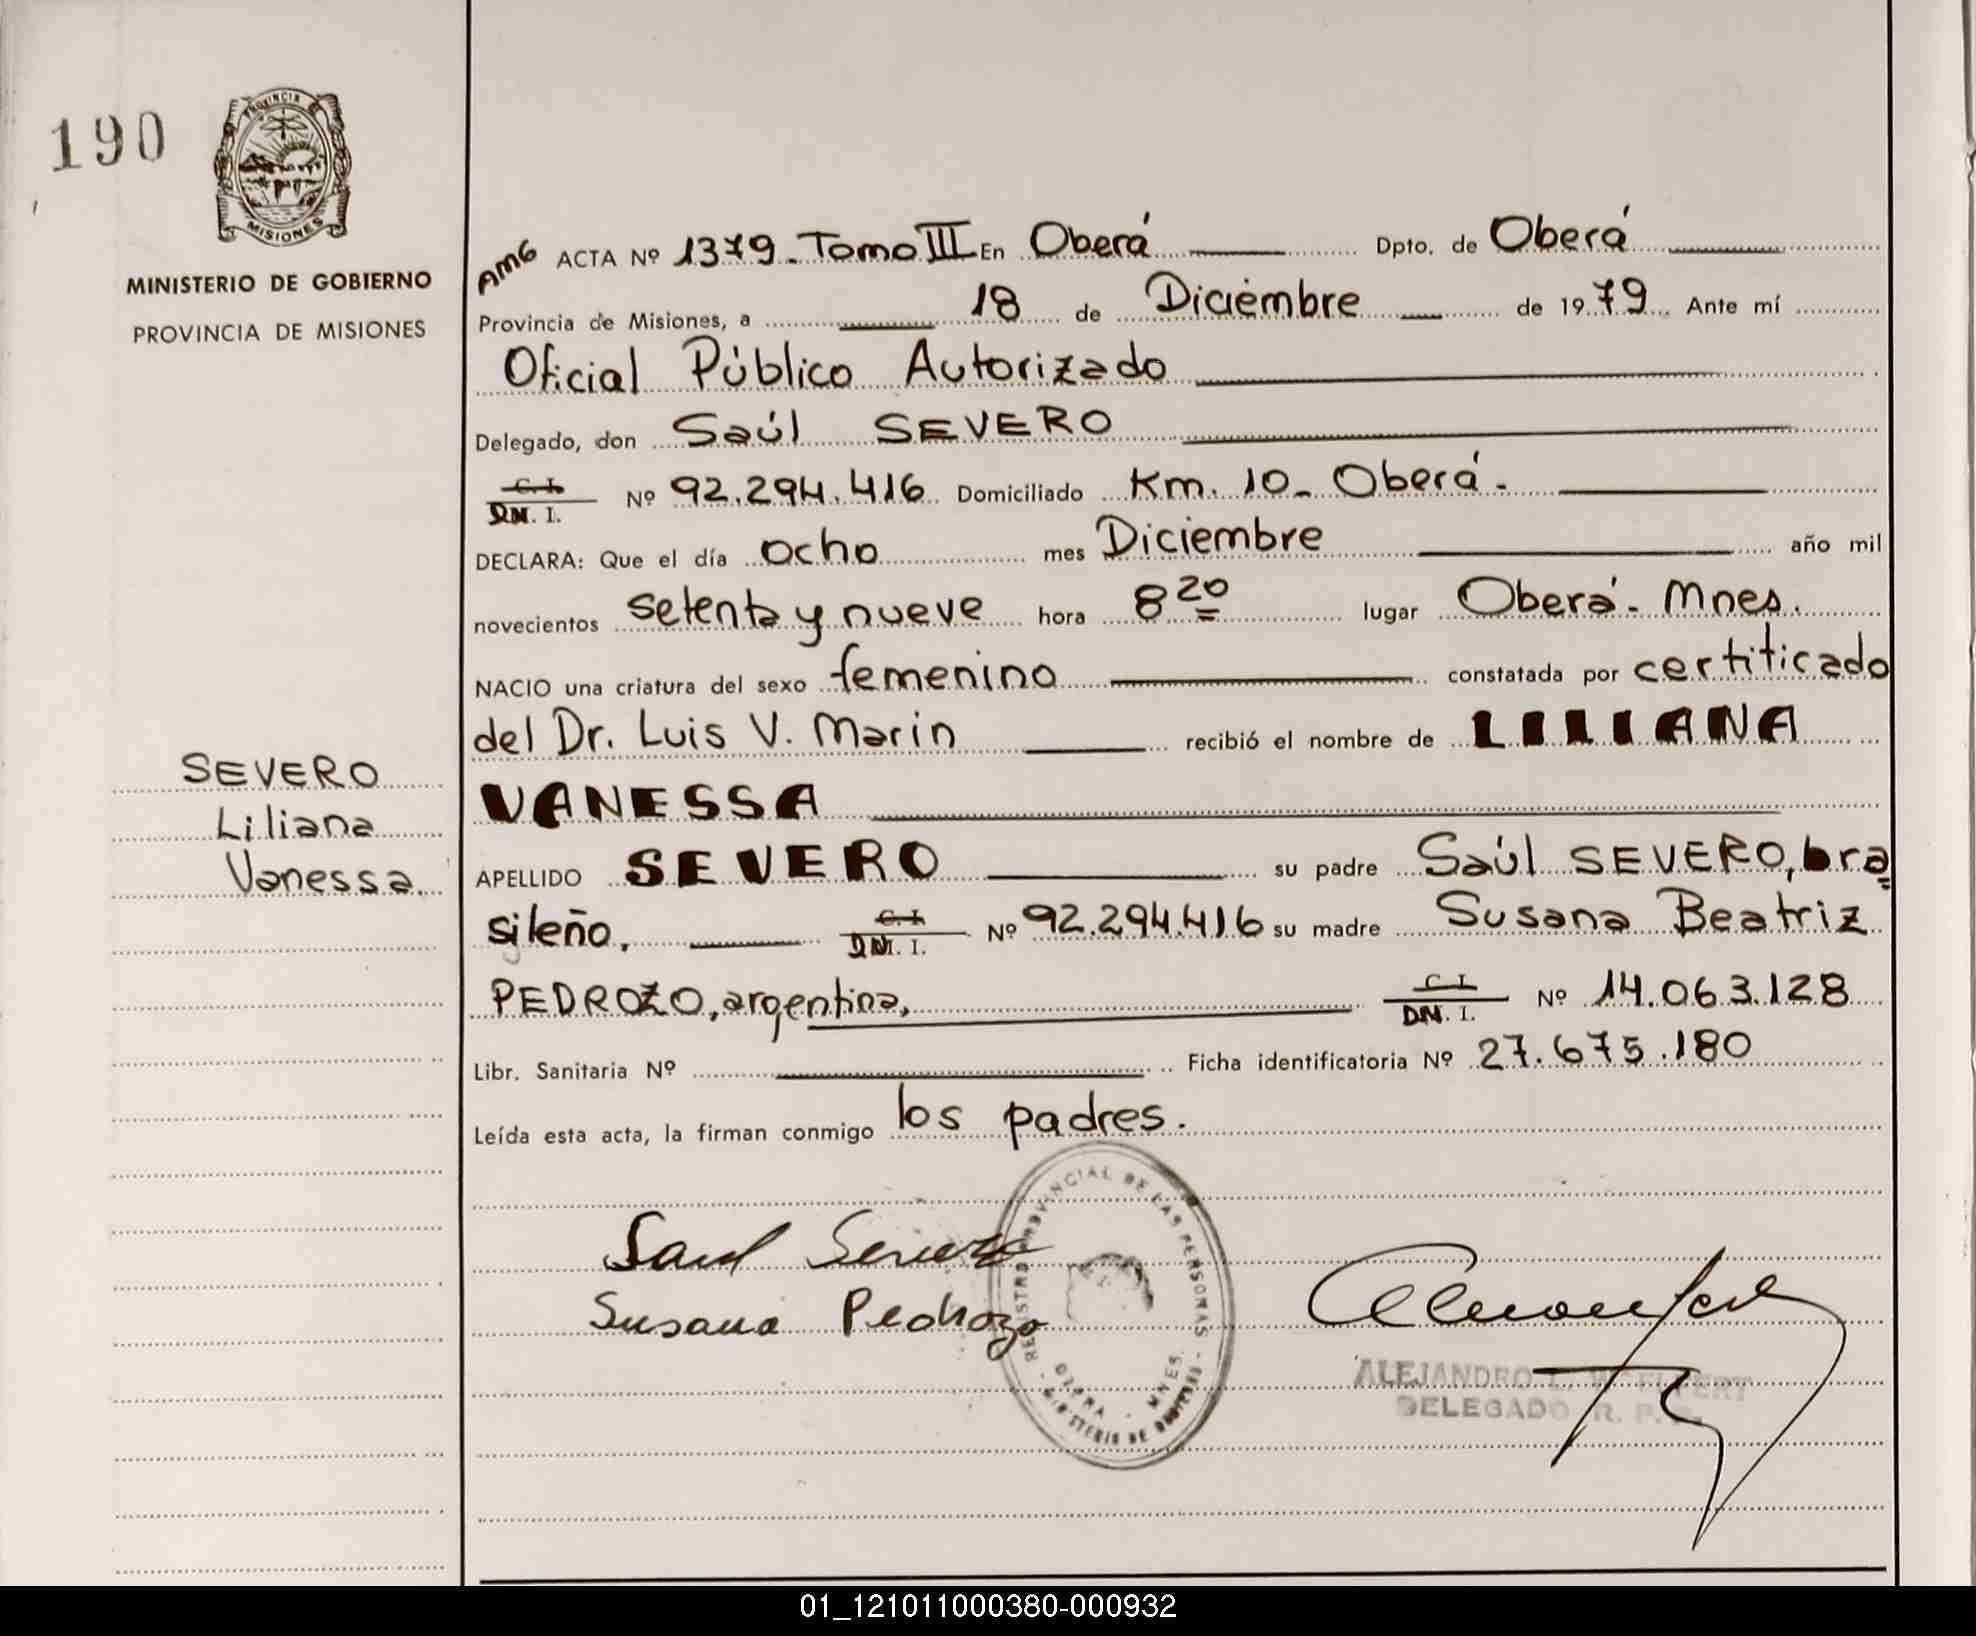 190
PROVINCIA DE
MISIONES
MINISTERIO DE GOBIERNO
PROVINCIA DE MISIONES
SEVERO
Liliana
Vanessa
AMG ACTA Nº 1379_ Tomo III En Oberá Dpto. de Oberá
Provincia de Misiones, a 18 de Diciembre de 1979 Ante mí
Oficial Público Autorizado
Delegado, don Saúl SEVERO
C. I.
D.N. I. Nº 92.294.416 Domiciliado Km. 10_ Oberá-
DECLARA: Que el día ocho mes Diciembre año mil
novecientos setenta y nueve hora 8 20 lugar Oberá- Mnes.
NACIO una criatura del sexo femenino constatada por certificado
del Dr. Luis V. Marin recibió el nombre de LILIANA
VANESSA
APELLIDO SEVERO su padre Saúl SEVERO, bra
sileño, C. I. D.N. I. Nº 92.294.416 su madre Susana Beatriz
PEDROZO, argentina, C. I. D.N. I. Nº 14.063.128
Libr. Sanitaria Nº Ficha identificatoria Nº 27.675.180
Leída esta acta, la firman conmigo los padres.
Saul Severo
Susana Pedrozo
REGISTRO PROVINCIAL DE LAS PERSONAS
OBERA - MNES.
MINISTERIO DE GOBIERNO
ALEJANDRO
DELEGADO R. P.
01_121011000380-000932